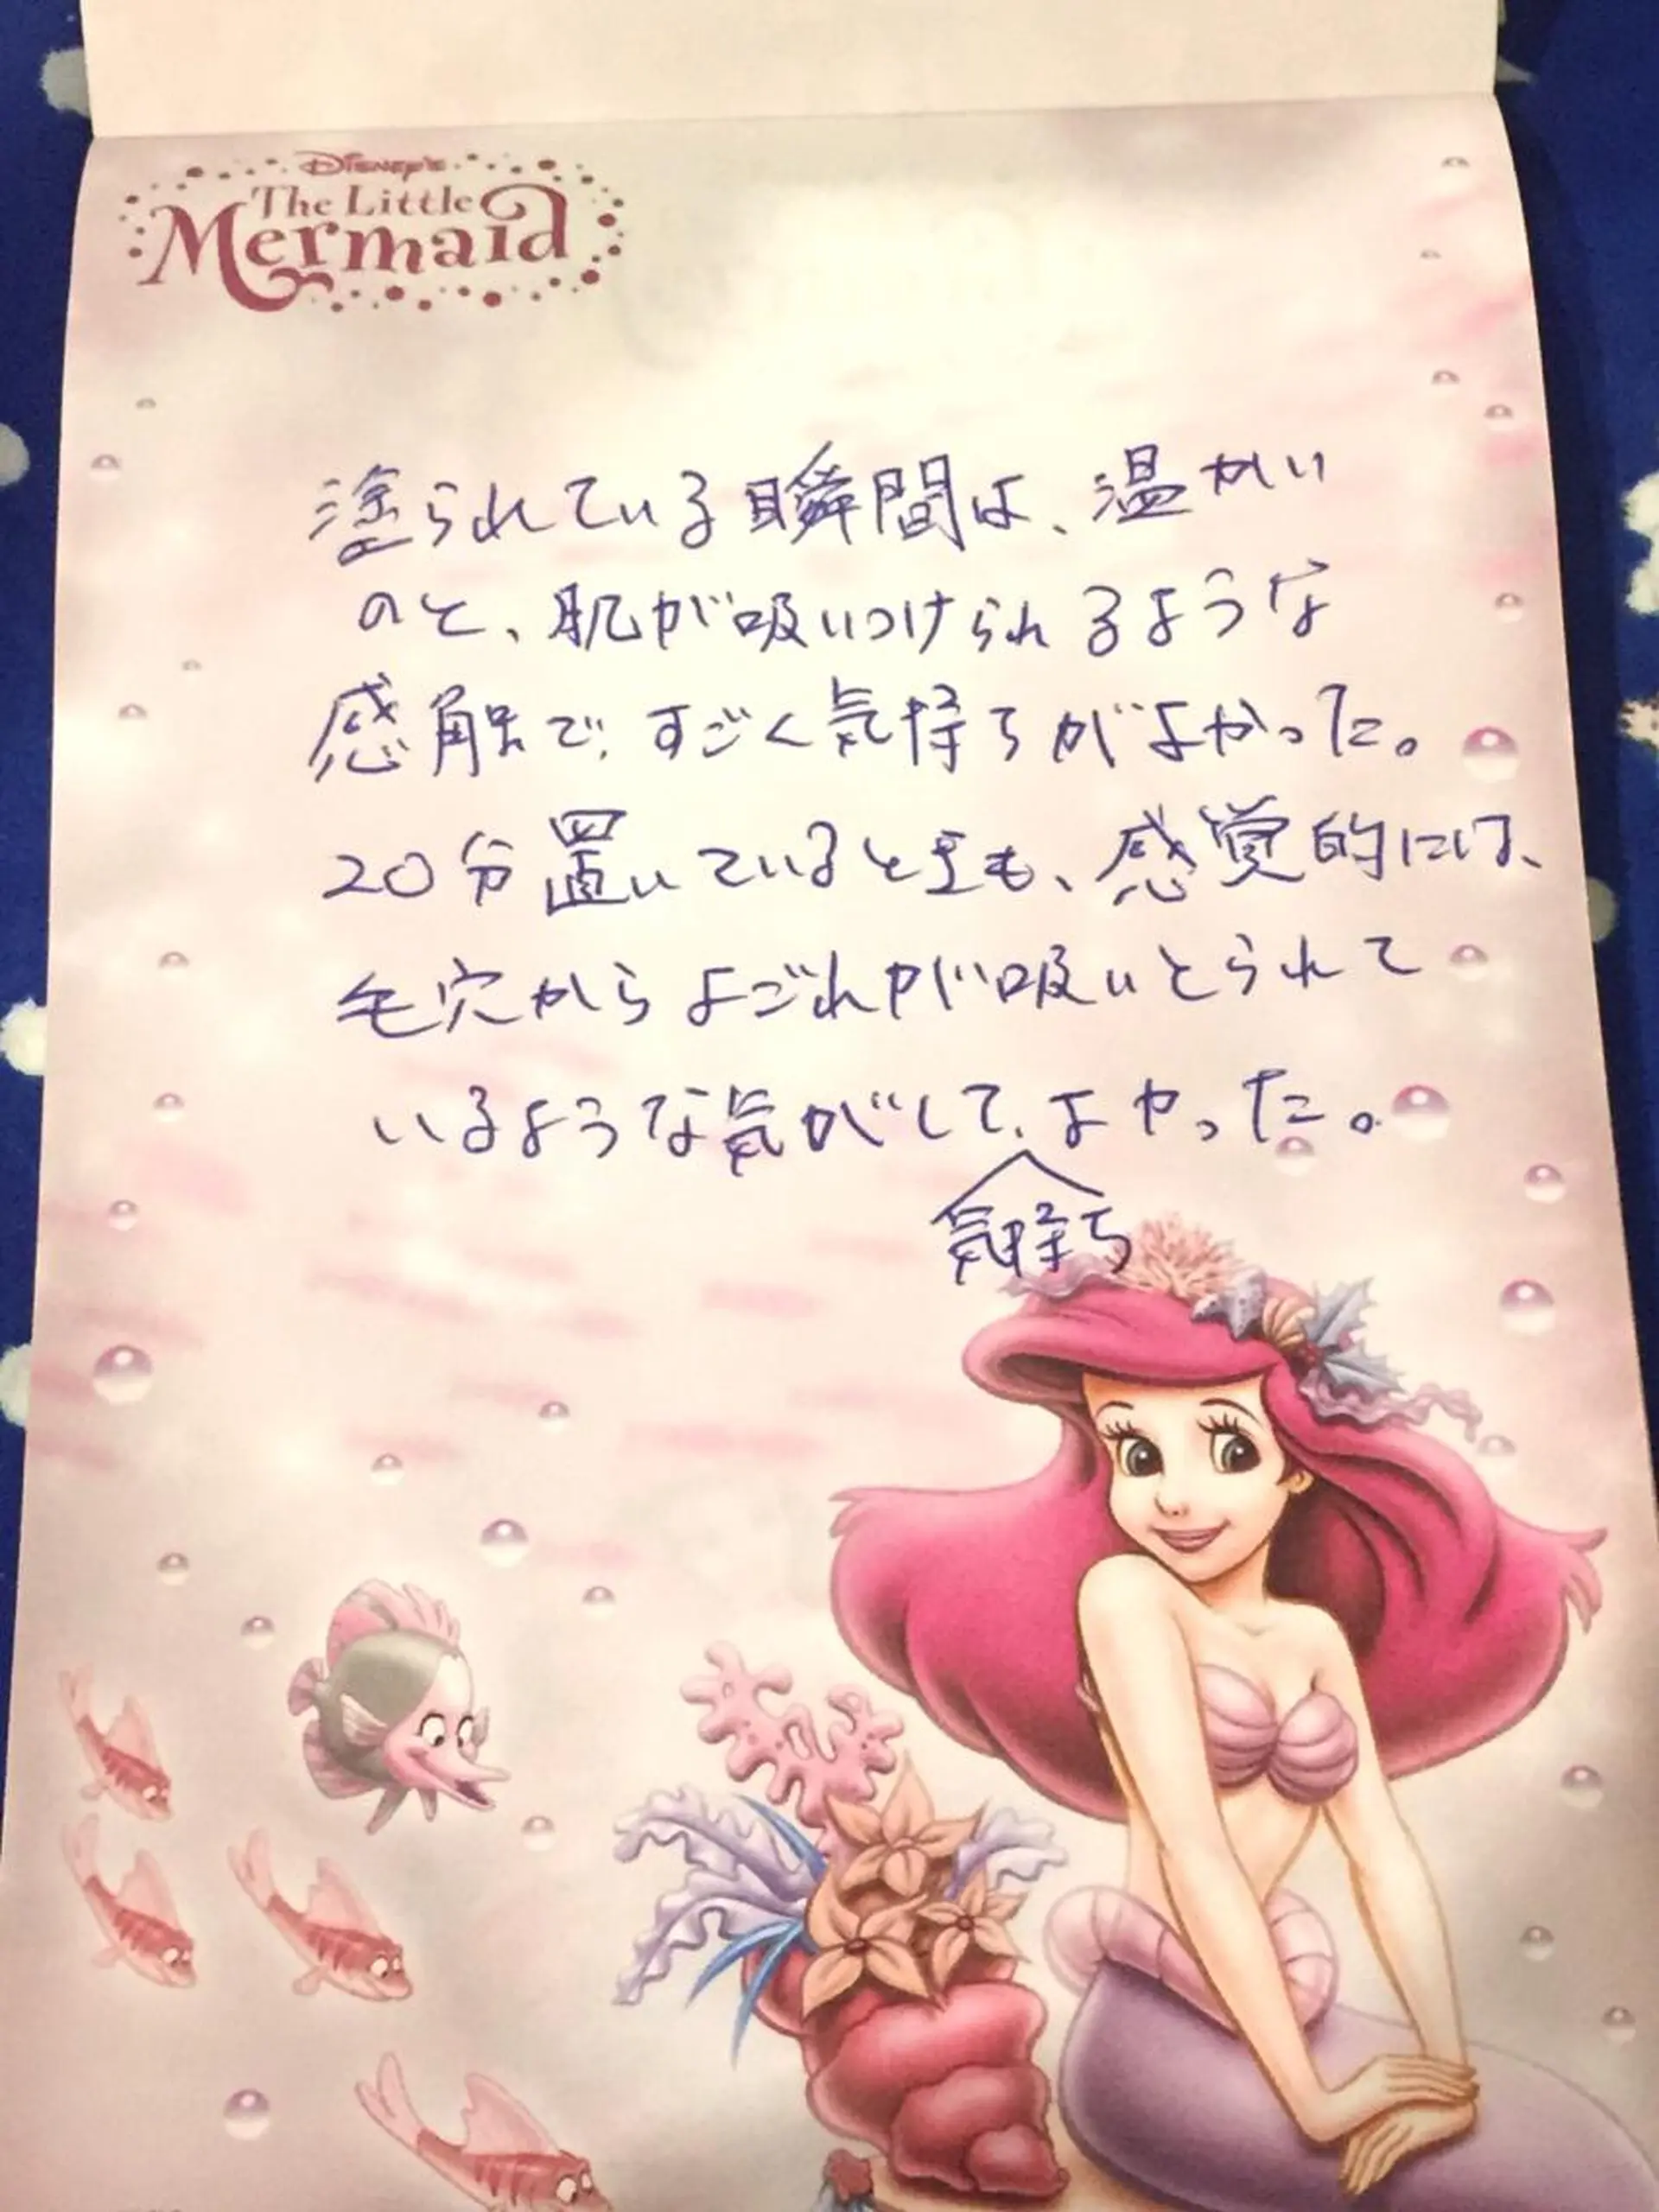 DISNEY'S
The Little
Mermaid
塗られている瞬間は、温かい
のと、肌が吸いつけられるような
感触で、すごく気持ちがよかった。
20分置いているときも、感覚的には、
毛穴からよごれが吸いとられて
いるような気がして、よかった。
気持ち